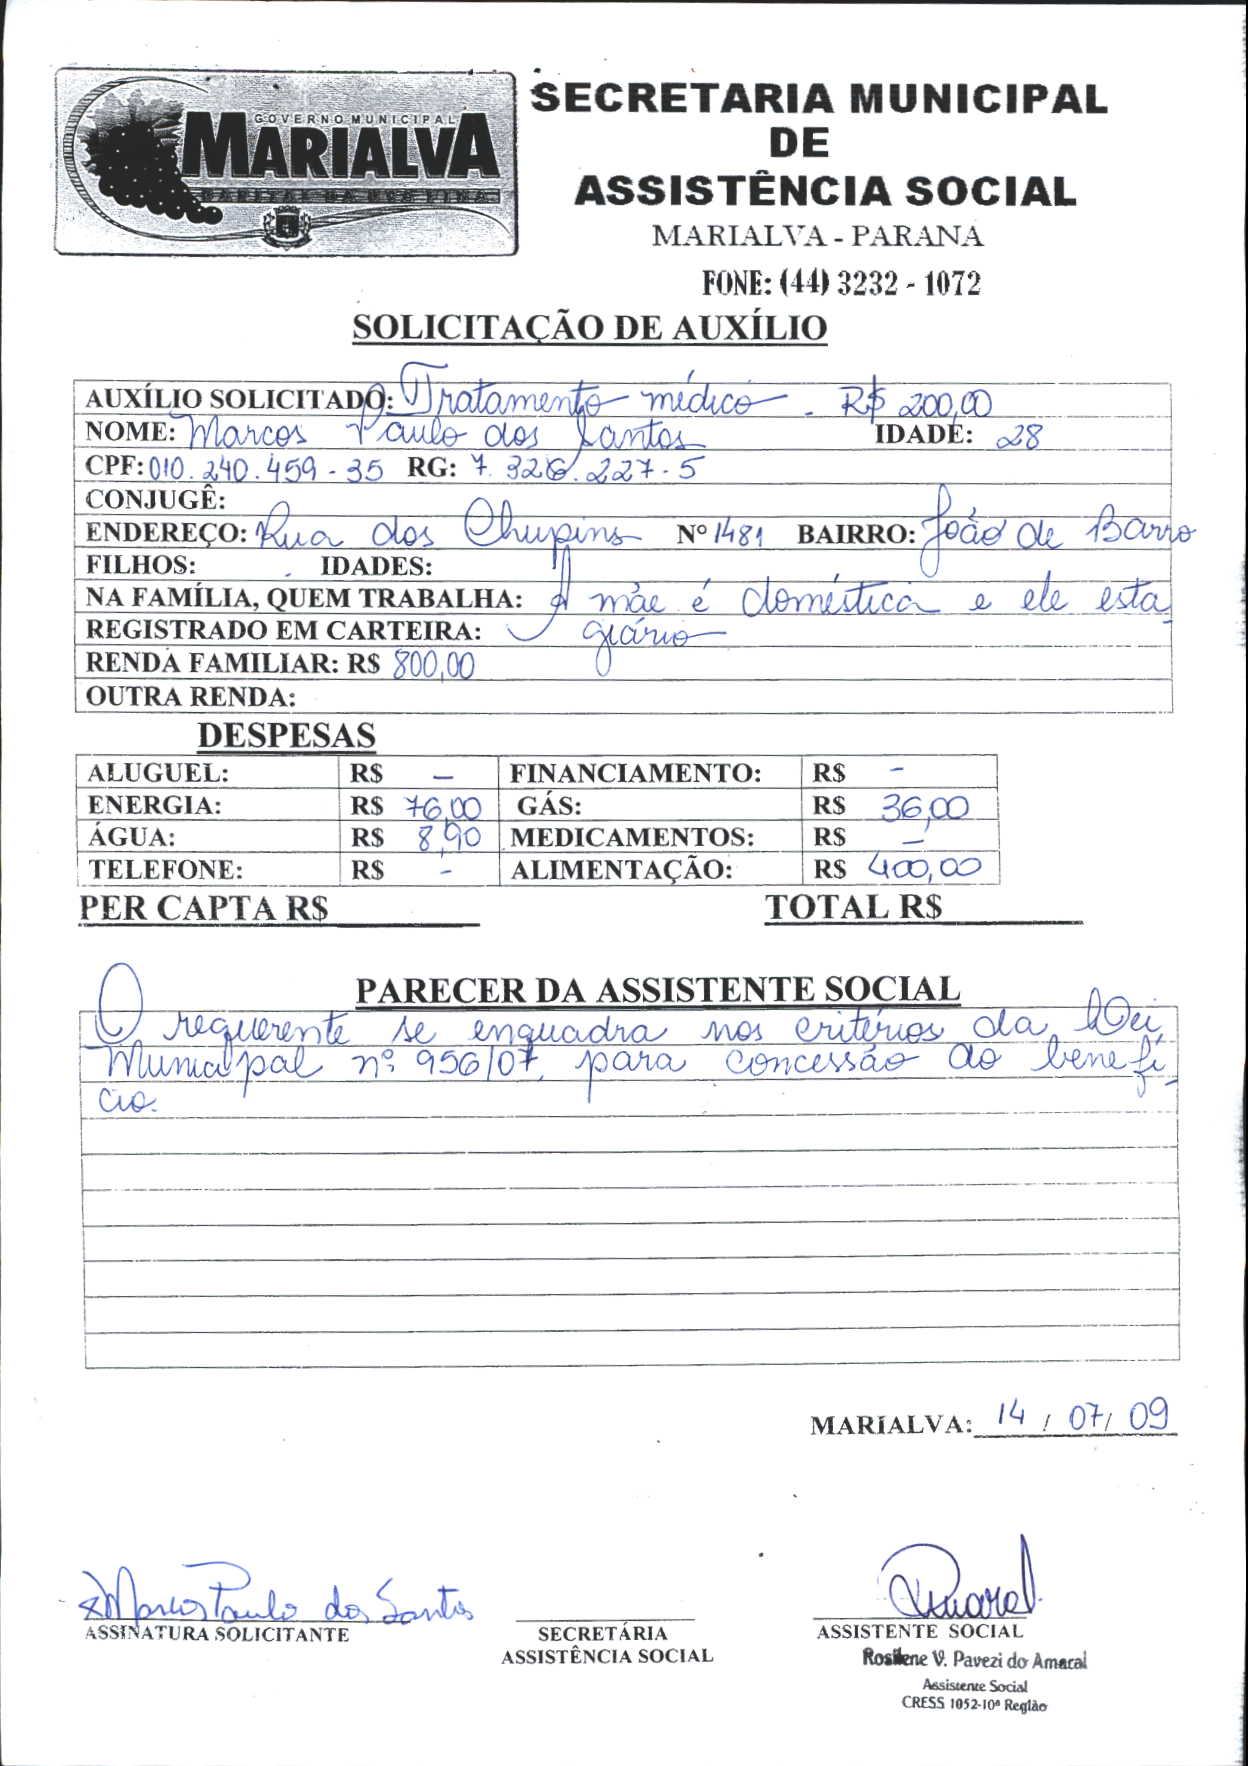 GOVERNO MUNICIPAL
MARIALVA
CAPITAL DA UVA FINA
SECRETARIA MUNICIPAL
DE
ASSISTÊNCIA SOCIAL
MARIALVA - PARANA
FONE: (44) 3232 - 1072
SOLICITAÇÃO DE AUXÍLIO
AUXÍLIO SOLICITADO: Tratamento médico - R$ 200,00
NOME: Marcos Paulo dos Santos IDADE: 28
CPF: 010.240.459-35 RG: 7.326.227-5
CONJUGÊ:
ENDEREÇO: Rua dos Chupins Nº 1481 BAIRRO: João de Barro
FILHOS: IDADES:
NA FAMÍLIA, QUEM TRABALHA: A mãe é doméstica e ele esta-
REGISTRADO EM CARTEIRA: giário
RENDA FAMILIAR: R$ 800,00
OUTRA RENDA:
DESPESAS
ALUGUEL: R$ - FINANCIAMENTO: R$ -
ENERGIA: R$ 76,00 GÁS: R$ 36,00
ÁGUA: R$ 8,90 MEDICAMENTOS: R$ -
TELEFONE: R$ - ALIMENTAÇÃO: R$ 400,00
PER CAPTA R$ TOTAL R$
PARECER DA ASSISTENTE SOCIAL
O requerente se enquadra nos critérios da Lei
Municipal nº 956/07, para concessão do benefí-
cio.
MARIALVA: 14 / 07 / 09
Marcos Paulo dos Santos
ASSINATURA SOLICITANTE SECRETÁRIA ASSISTENTE SOCIAL
ASSISTÊNCIA SOCIAL Rosilene V. Pavezi do Amaral
Assistente Social
CRESS 1052-10ª Região